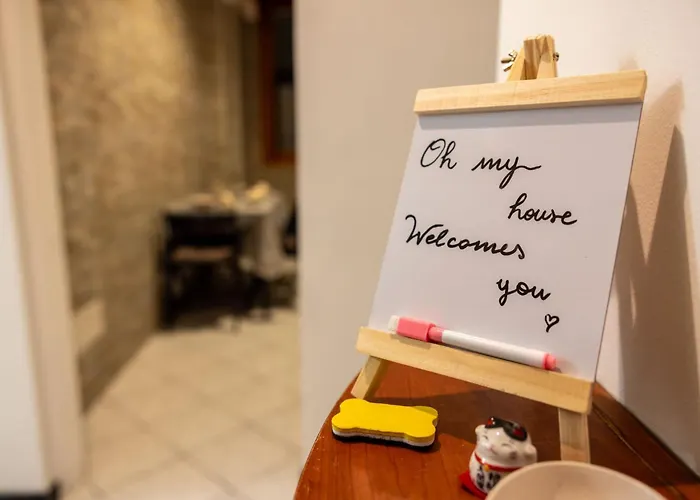 Oh my
house
Welcomes
you
♡